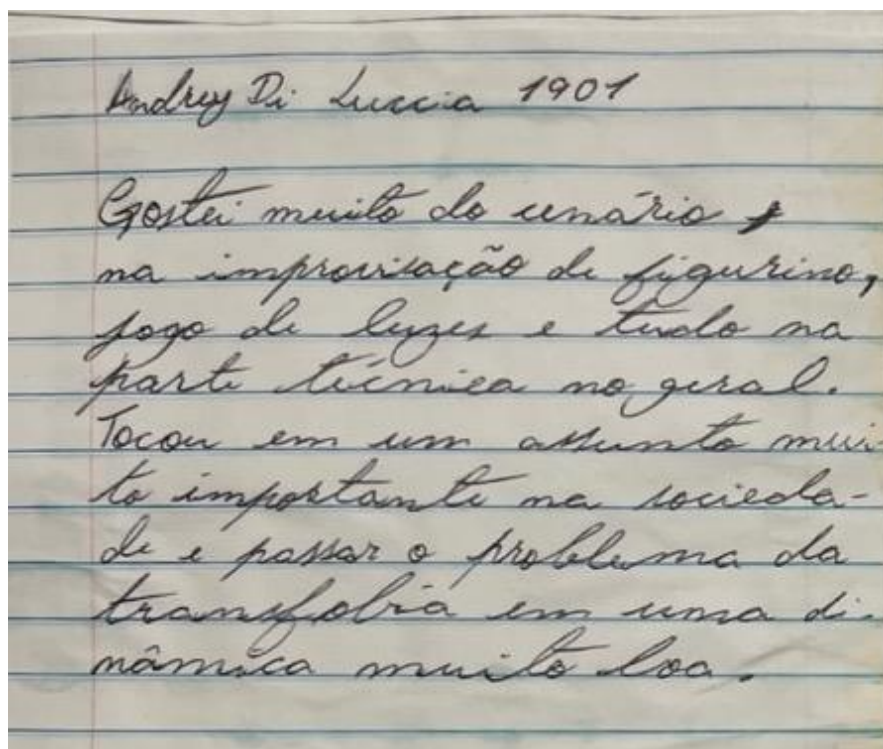 Andrey Di Luccia 1901
Gostei muito do cenário,
na improvisação de figurino,
jogo de luzes e tudo na
parte técnica no geral.
Tocou em um assunto mui-
to importante na socieda-
de e passar o problema da
transfobia em uma di-
nâmica muito boa.